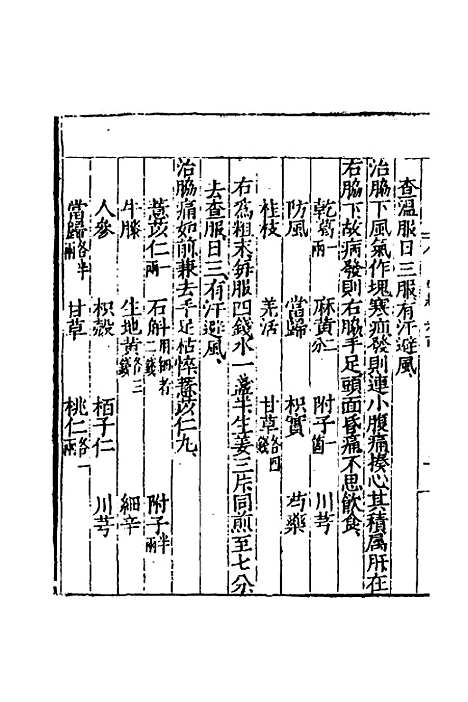 查溫服日三服有汗避風
治脇下風氣作塊寒疝發則連小腹痛湊心其積屬肝在
右脇下故病發則右脇手足頭面昏痛不思飲食
乾葛一兩 麻黃三分 附子一箇 川芎
防風 當歸 枳實 芍藥
桂枝 羗活 甘草各四錢
右爲粗末每服四錢水一盞半生姜三片同煎至七分
去查服日三有汗避風
治脇痛如前兼去手足枯悴薏苡仁丸
薏苡仁一兩 石斛用細者二錢 附子半兩
牛膝 生地黃各三錢 細辛
人參 枳殼 栢子仁 川芎
當歸各半兩 甘草 桃仁各一兩